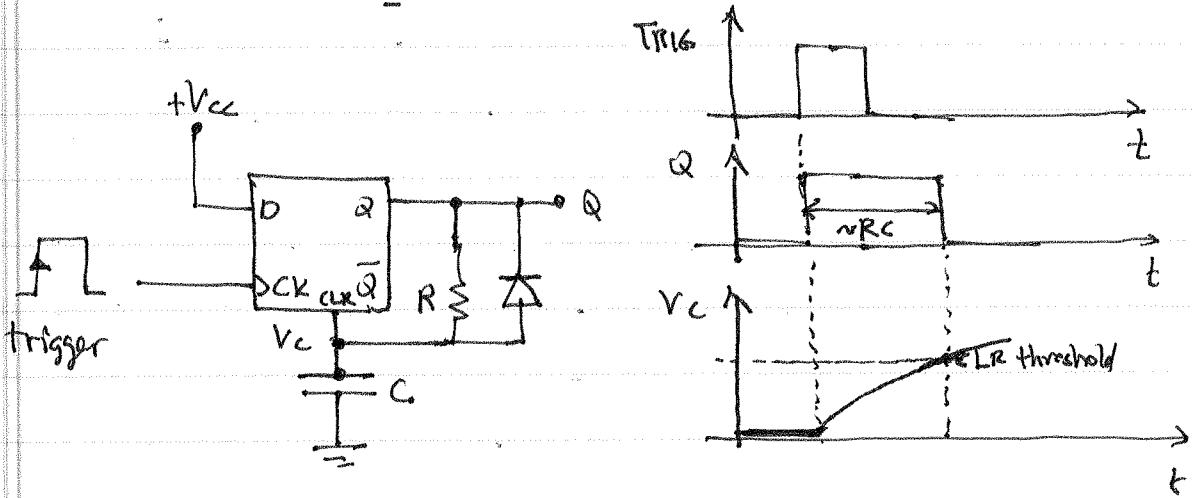 +Vcc
D
Q
Q
CK
CLR
Q̅
trigger
Vc
R
C
TRIG
t
Q
~RC
t
Vc
CLR threshold
t